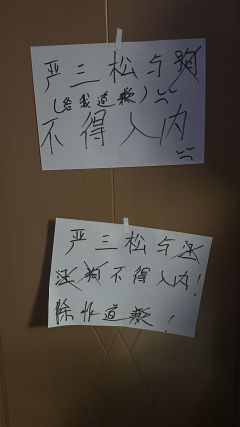 严三松与狗
(给我道歉)
不得入内
严三松与
狗不得入内!
除非道歉!